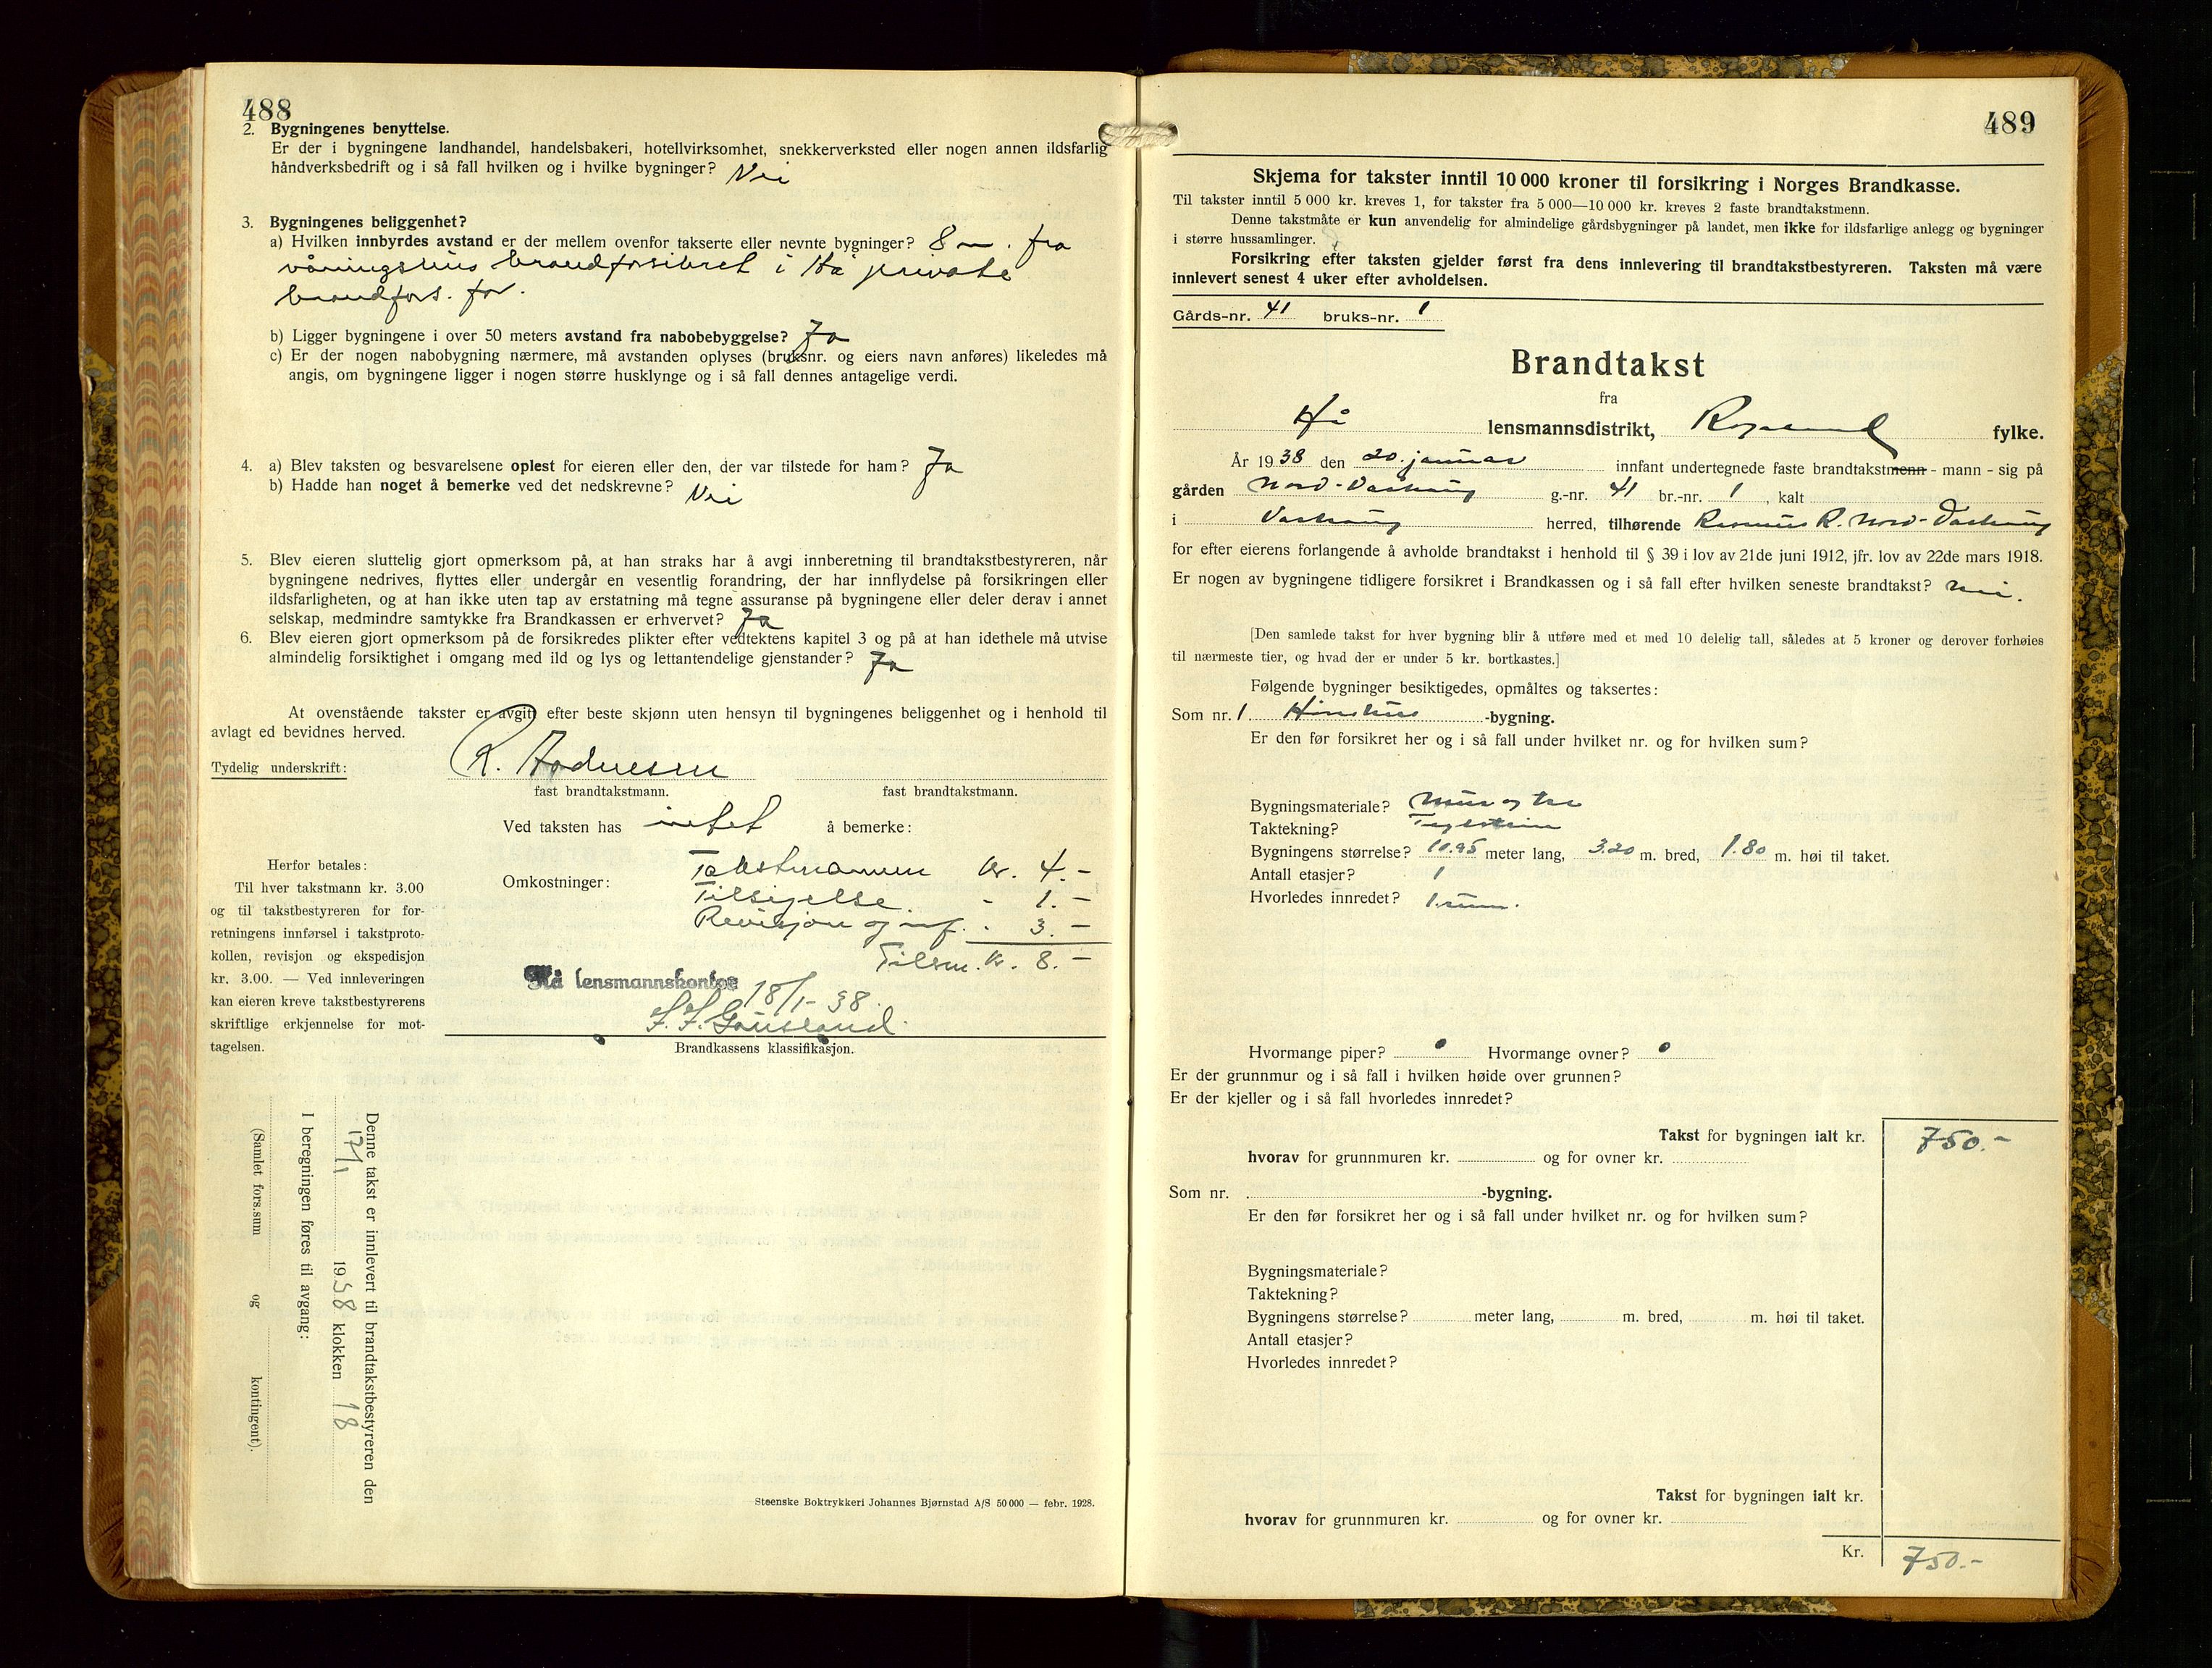 488
2. Bygningenes benyttelse.
Er der i bygningene landhandel, handelsbakeri, hotellvirksomhet, snekkerverksted eller nogen annen ildsfarlig
håndverksbedrift og i så fall hvilken og i hvilke bygninger? Nei
3. Bygningenes beliggenhet?
a) Hvilken innbyrdes avstand er der mellem ovenfor takserte eller nevnte bygninger? 8 m. fra
våningshus brandforsikret i Hå private
brandfors. for.
b) Ligger bygningene i over 50 meters avstand fra nabobebyggelse? Ja
c) Er der nogen nabobygning nærmere, må avstanden oplyses (bruksnr. og eiers navn anføres) likeledes må
angis, om bygningene ligger i nogen større husklynge og i så fall dennes antagelige verdi.
4. a) Blev taksten og besvarelsene oplest for eieren eller den, der var tilstede for ham? Ja
b) Hadde han noget å bemerke ved det nedskrevne? Nei
5. Blev eieren sluttelig gjort opmerksom på, at han straks har å avgi innberetning til brandtakstbestyreren, når
bygningene nedrives, flyttes eller undergår en vesentlig forandring, der har innflydelse på forsikringen eller
ildsfarligheten, og at han ikke uten tap av erstatning må tegne assuranse på bygningene eller deler derav i annet
selskap, medmindre samtykke fra Brandkassen er erhvervet? Ja
6. Blev eieren gjort opmerksom på de forsikredes plikter efter vedtektens kapitel 3 og på at han idethele må utvise
almindelig forsiktighet i omgang med ild og lys og lettantendelige gjenstander? Ja
At ovenstående takster er avgitt efter beste skjønn uten hensyn til bygningenes beliggenhet og i henhold til
avlagt ed bevidnes herved.
Tydelig underskrift: R.
fast brandtakstmann. fast brandtakstmann.
Ved taksten has intet å bemerke:
Omkostninger: Takstmannen kr. 4.-
Tilsigelse - 1.-
Revisjon og innf. - 3.-
Tilsm. kr. 8.-
Hå lensmannskontor 18/1-38.
Brandkassens klassifikasjon.
Herfor betales:
Til hver takstmann kr. 3.00
og til takstbestyreren for for-
retningens innførsel i takstproto-
kollen, revisjon og ekspedisjon
kr. 3.00. — Ved innleveringen
kan eieren kreve takstbestyrerens
skriftlige erkjennelse for mot-
tagelsen.
Denne takst er innlevert til brandtakstbestyreren den
17/1 1938 klokken 18
I beregningen føres til avgang:
(Samlet fors.sum og kontingent).
Steenske Boktrykkeri Johannes Bjørnstad A/S 50 000 — febr. 1928.
489
Skjema for takster inntil 10 000 kroner til forsikring i Norges Brandkasse.
Til takster inntil 5 000 kr. kreves 1, for takster fra 5 000—10 000 kr. kreves 2 faste brandtakstmenn.
Denne takstmåte er kun anvendelig for almindelige gårdsbygninger på landet, men ikke for ildsfarlige anlegg og bygninger
i større hussamlinger.
Forsikring efter taksten gjelder først fra dens innlevering til brandtakstbestyreren. Taksten må være
innlevert senest 4 uker efter avholdelsen.
Gårds-nr. 41 bruks-nr. 1
Brandtakst
fra
Hå lensmannsdistrikt, Rogaland fylke.
År 1938 den 20. januar innfant undertegnede faste brandtakstmenn - mann - sig på
gården Nord-Varhaug g.-nr. 41 br.-nr. 1, kalt
i Varhaug herred, tilhørende Rasmus R. Nord-Varhaug
for efter eierens forlangende å avholde brandtakst i henhold til § 39 i lov av 21de juni 1912, jfr. lov av 22de mars 1918.
Er nogen av bygningene tidligere forsikret i Brandkassen og i så fall efter hvilken seneste brandtakst? nei.
[Den samlede takst for hver bygning blir å utføre med et med 10 delelig tall, således at 5 kroner og derover forhøies
til nærmeste tier, og hvad der er under 5 kr. bortkastes.]
Følgende bygninger besiktigedes, opmåltes og taksertes:
Som nr. 1 Hønsehus -bygning.
Er den før forsikret her og i så fall under hvilket nr. og for hvilken sum?
Bygningsmateriale? Mur og tre
Taktekning? Teglstein
Bygningens størrelse? 10.95 meter lang, 3.20 m. bred, 1.80 m. høi til taket.
Antall etasjer? 1
Hvorledes innredet? 1 rum.
Hvormange piper? 0 Hvormange ovner? 0
Er der grunnmur og i så fall i hvilken høide over grunnen?
Er der kjeller og i så fall hvorledes innredet?
Takst for bygningen ialt kr. 750.-
hvorav for grunnmuren kr. og for ovner kr.
Som nr. -bygning.
Er den før forsikret her og i så fall under hvilket nr. og for hvilken sum?
Bygningsmateriale?
Taktekning?
Bygningens størrelse? meter lang, m. bred, m. høi til taket.
Antall etasjer?
Hvorledes innredet?
Takst for bygningen ialt kr.
hvorav for grunnmuren kr. og for ovner kr.
Kr. 750.-